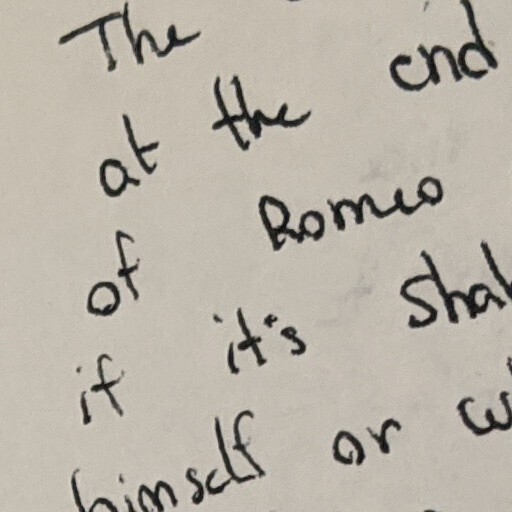 The
at the end
of Romeo
if it's Shak
himself or w